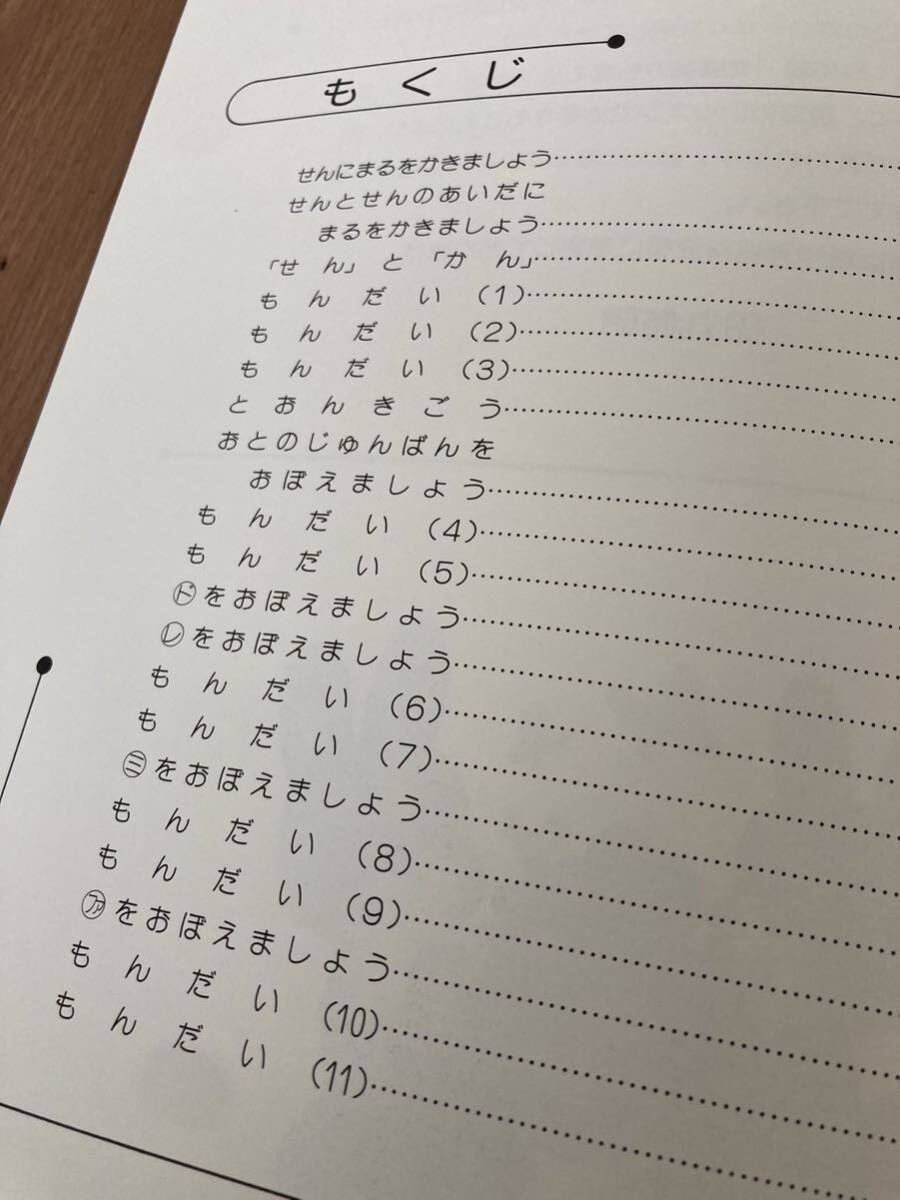 もくじ
せんにまるをかきましょう
せんとせんのあいだに
まるをかきましょう
「せん」と「かん」
もんだい(1)
もんだい(2)
もんだい(3)
とおんきごう
おとのじゅんばんを
おぼえましょう
もんだい(4)
もんだい(5)
㋣゙をおぼえましょう
㋹をおぼえましょう
もんだい(6)
もんだい(7)
㋯をおぼえましょう
もんだい(8)
もんだい(9)
ファをおぼえましょう
もんだい(10)
もんだい(11)